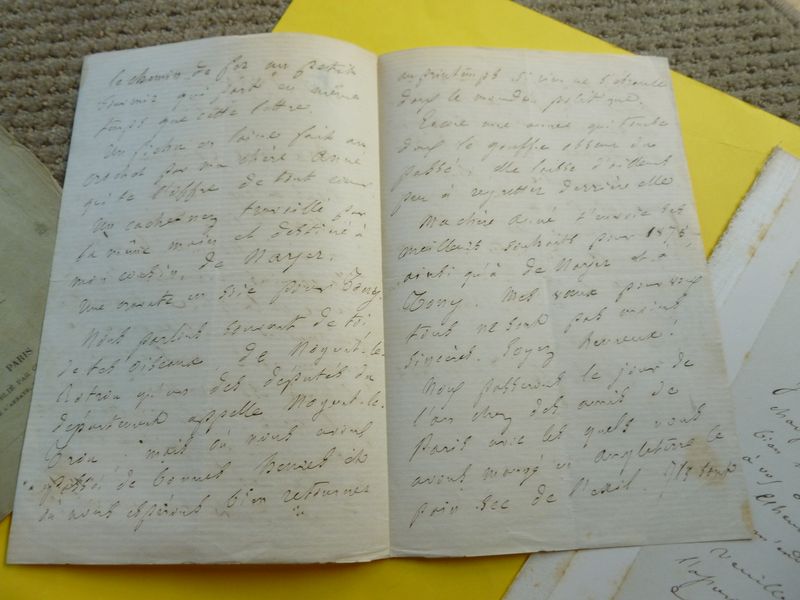 le chemin de fer un petit
souvenir qui part en même
temps que cette lettre.
Un fichu en laine fait au
crochet par ma chère Anne
qui te l'offre de tout cœur
Un cachenez travaillé par
la même main et destiné à
mon cousin de Narjer.
Une cravate en soie pour Tony.
Nous parlons souvent de toi
de tes oiseaux, de Nogent-le-
Rotrou qu'un des députés du
département appelle Nogent-le-
Trou, mais où nous avons
passé de bonnes heures et
où nous espérons bien retourner
au printemps si rien ne s'écroule
dans le monde politique.
Encore une année qui tombe
dans le gouffre obscur du
passé; elle laisse d'ailleurs
peu à regretter derrière elle
Ma chère Anne t'envoie ses
meilleurs souhaits pour 1875
ainsi qu'à de Narjer et à
Tony. Mes vœux pour vous
tous ne sont pas moins
sincères. Soyez heureux!
Nous passerons le jour de
l'an chez des amis de
Paris avec les quels nous
avons mangé en Angleterre le
pain sec de l'exil. Ils sont
PARIS
bien
à vos